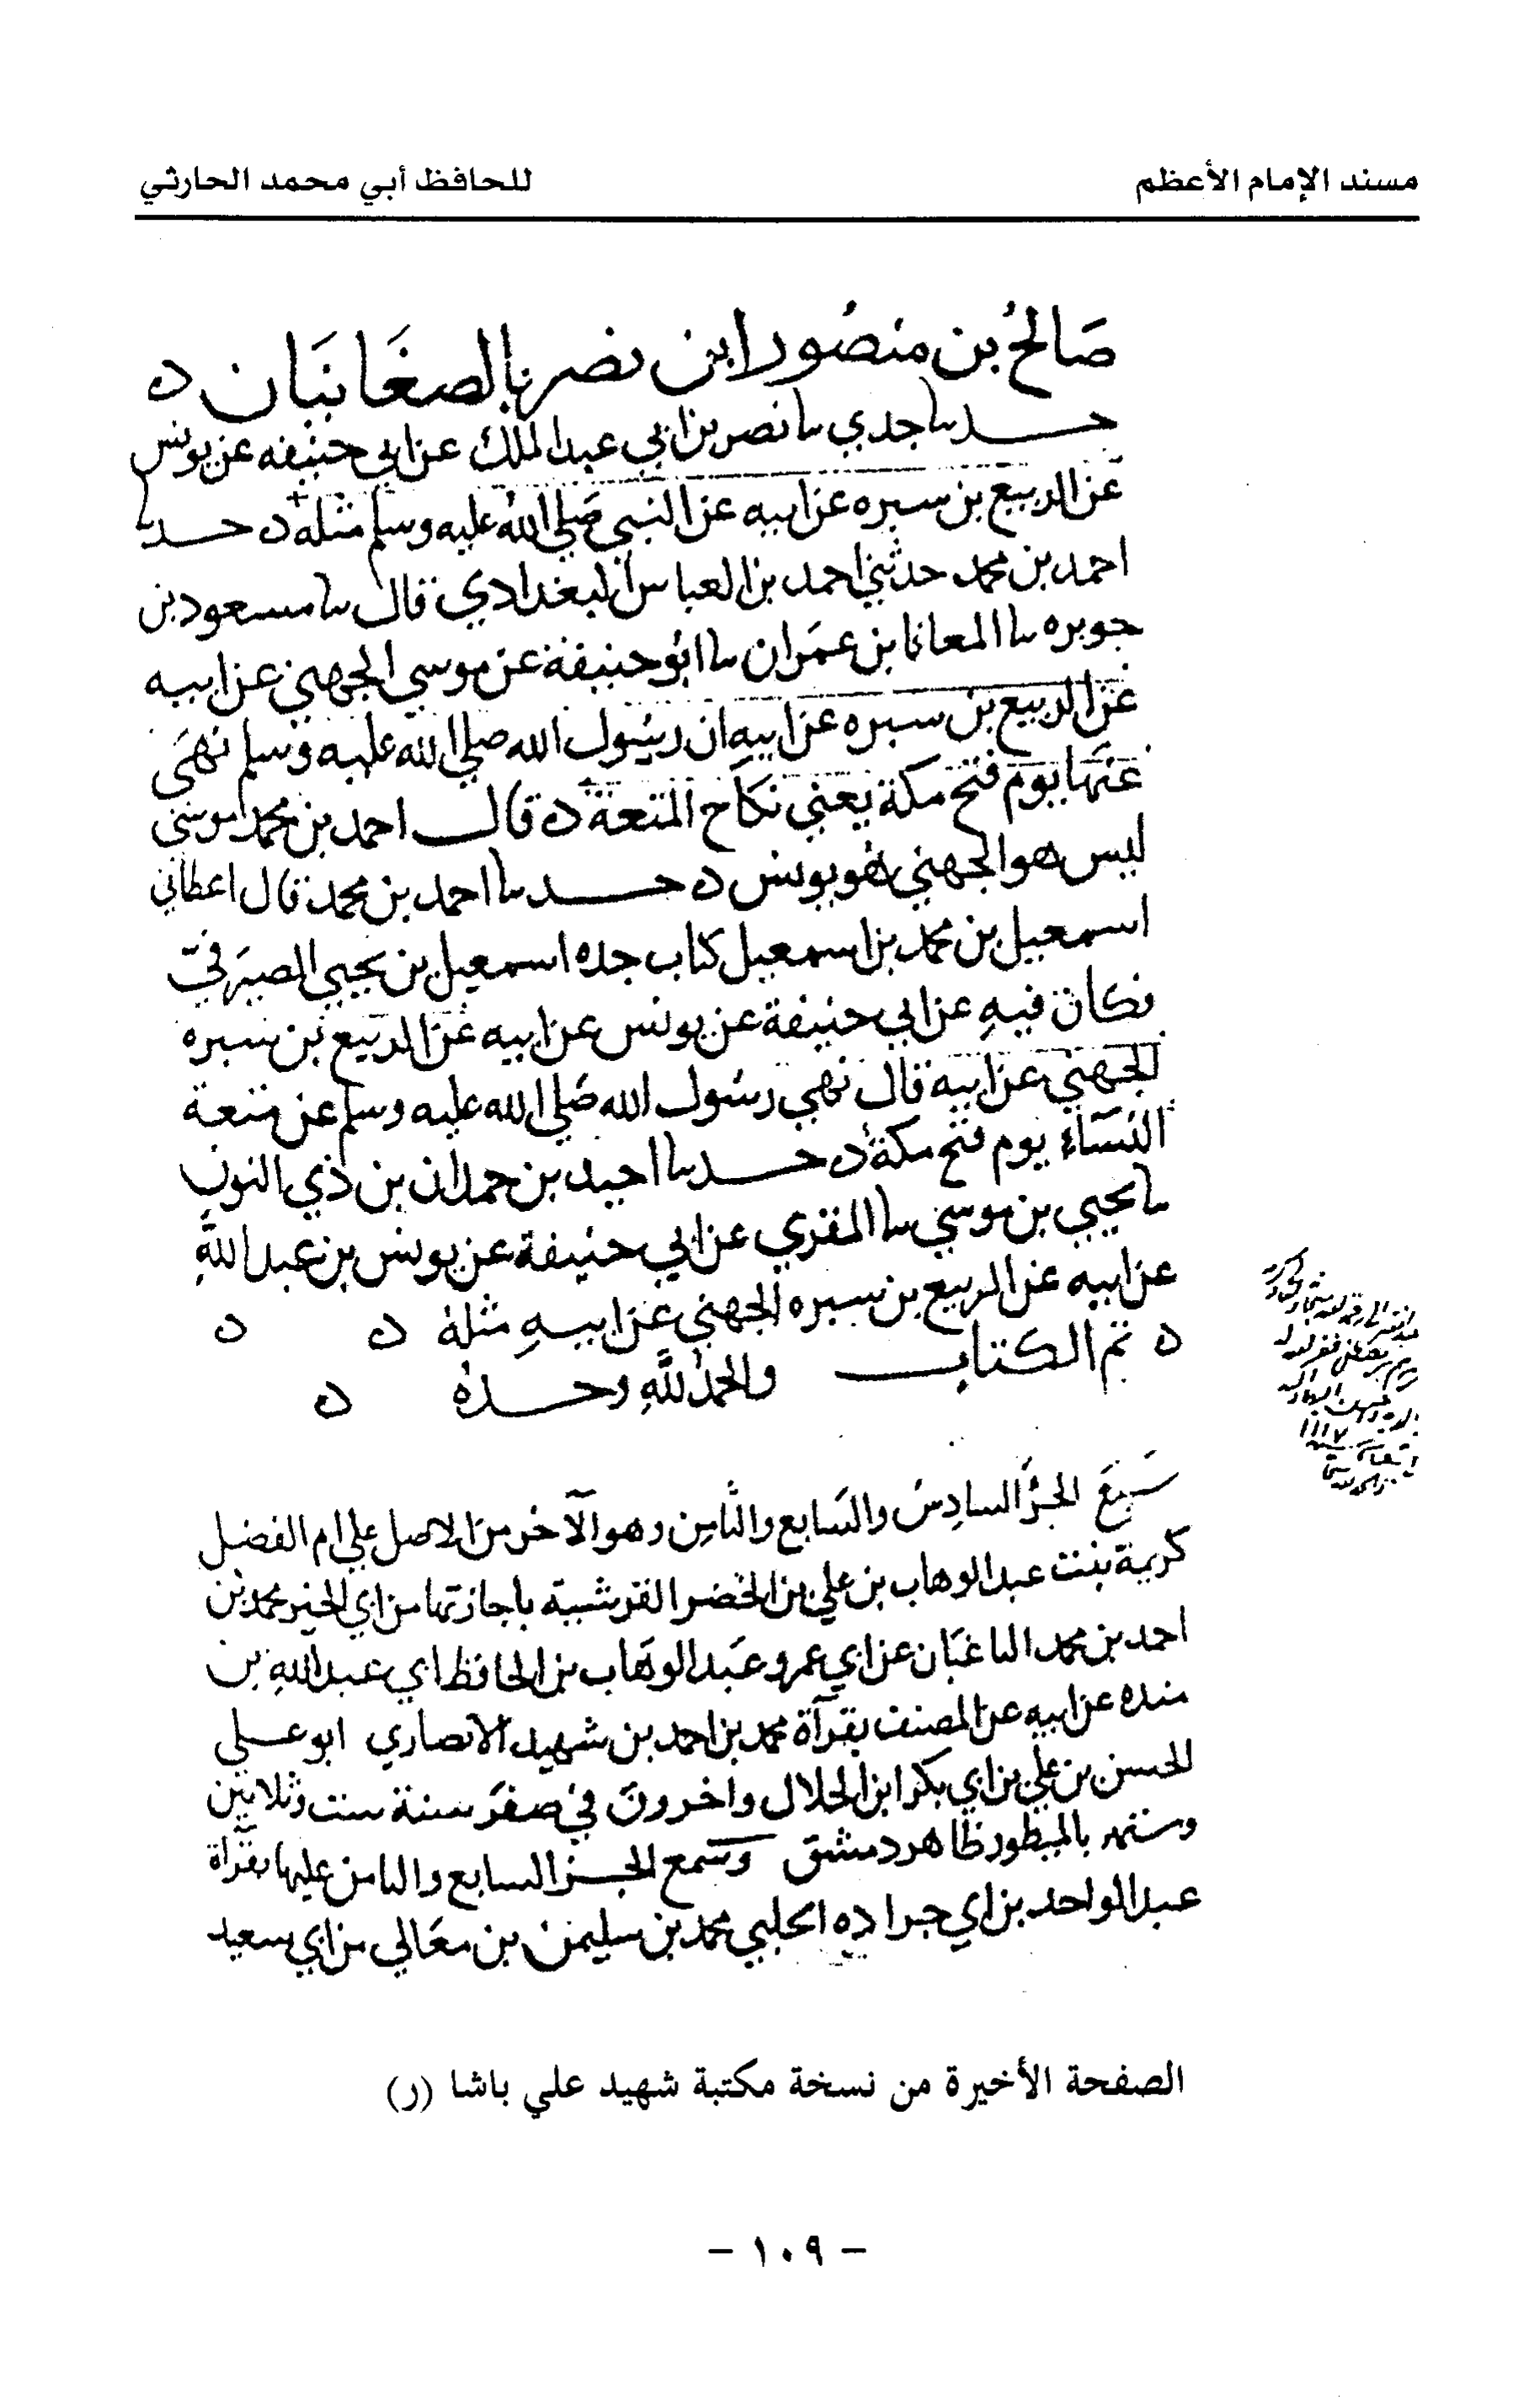 مسند الإمام الأعظم
للحافظ أبي محمد الحارثي
صَالحُ بن منصُور ابن نصر بالصغَانيَان ه
حدثنا جدي ثنا نصر بن ابي عبد الملك عن ابي حنيفه عن يونس
عن الربيع بن سبره عن ابيه عن النبي صَلي اللهُ عليه وسلم مثله ه حدثنا
احمد بن محمد حدثني احمد بن العباس البغدادي قال ثنا مسعود بن
جويره ثنا المعافا بن عمَران ثنا ابُو حنيفة عن موسي الجهني عن ابيه
عن الربيع بن سبره عن ابيه ان رسُول الله صلي الله عليه وسلم نهَى
عنها يوم فتح مكة يعني نكاح المتعة ه قال احمد بن محمد موسَى
ليس هو الجهني هو يونس ه حدثنا احمد بن محمد قال اعطاني
اسمعيل بن محمد بن اسمعيل كتاب جده اسمعيل بن يحيي الصيرَفي
فكان فيهِ عن ابي حنيفة عن يونس عن ابيه عن الربيع بن سبره
الجهني عن ابيه قال نهي رسُول الله صَلي الله عليه وسلم عن متعة
النسَاء يوم فتح مكة ه حدثنا احيد بن حمدان بن ذي النون
ثنا يحيي بن موسي ثنا المقري عن ابي حنيفة عن يونس بن عبد اللَّهِ
عن ابيه عن الربيع بن سبره الجهني عن ابيهِ مثلهُ ه ه
ه تم الكتاب والحمدُ للَّهِ وحدهُ ه
سَمِعَ الجزُ السادِسُ والسَّابع والثَّامِن وهو الآخر من الاصل علي ام الفضل
كريمة بنت عبد الوهاب بن علي بن الخضر القرشية باجازتها من ابي الخير محمد بن
احمد بن محمد الباغبَان عن ابي عمرو عَبد الوهَاب بن الحافظ ابي عبد اللهِ بن
منده عن ابيه عن المصنف بقرآة محمد بن احمد بن شهيد الانصاري ابو علي
الحسن بن علي بن ابي بكر ابن الخلال واخرون في صفر سنة ست وثلاثين
وستمه بالميطور ظاهر دمشق وسَمع الجز السابع والثامن عليها بقرآة
عبد الواحد بن ابي جراده الحلبي محمد بن سليمن بن معَالي بن ابي سعيد
١١١٧
الصفحة الأخيرة من نسخة مكتبة شهيد علي باشا (ر)
– ١٠٩ –